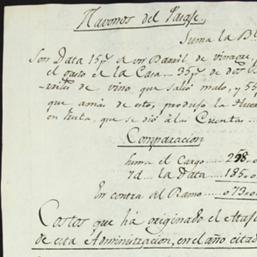 Havonos del Parage,
Suma la B
Son Data 15p.s a un Barril de vinagre,
el gasto de la Casa ... 35p.s de dos
de vino, que salió malo, y 55
que amas de esto, produjo la Huer
en fruta, que se dió á las Cuentas
Comparacion
Suma el Cargo ...... 258.
Yd... la Data ...... 185.0
En contra al Ramo .. 073.0
Costos que há originado el Atas
de esta Administracion, en el año citad